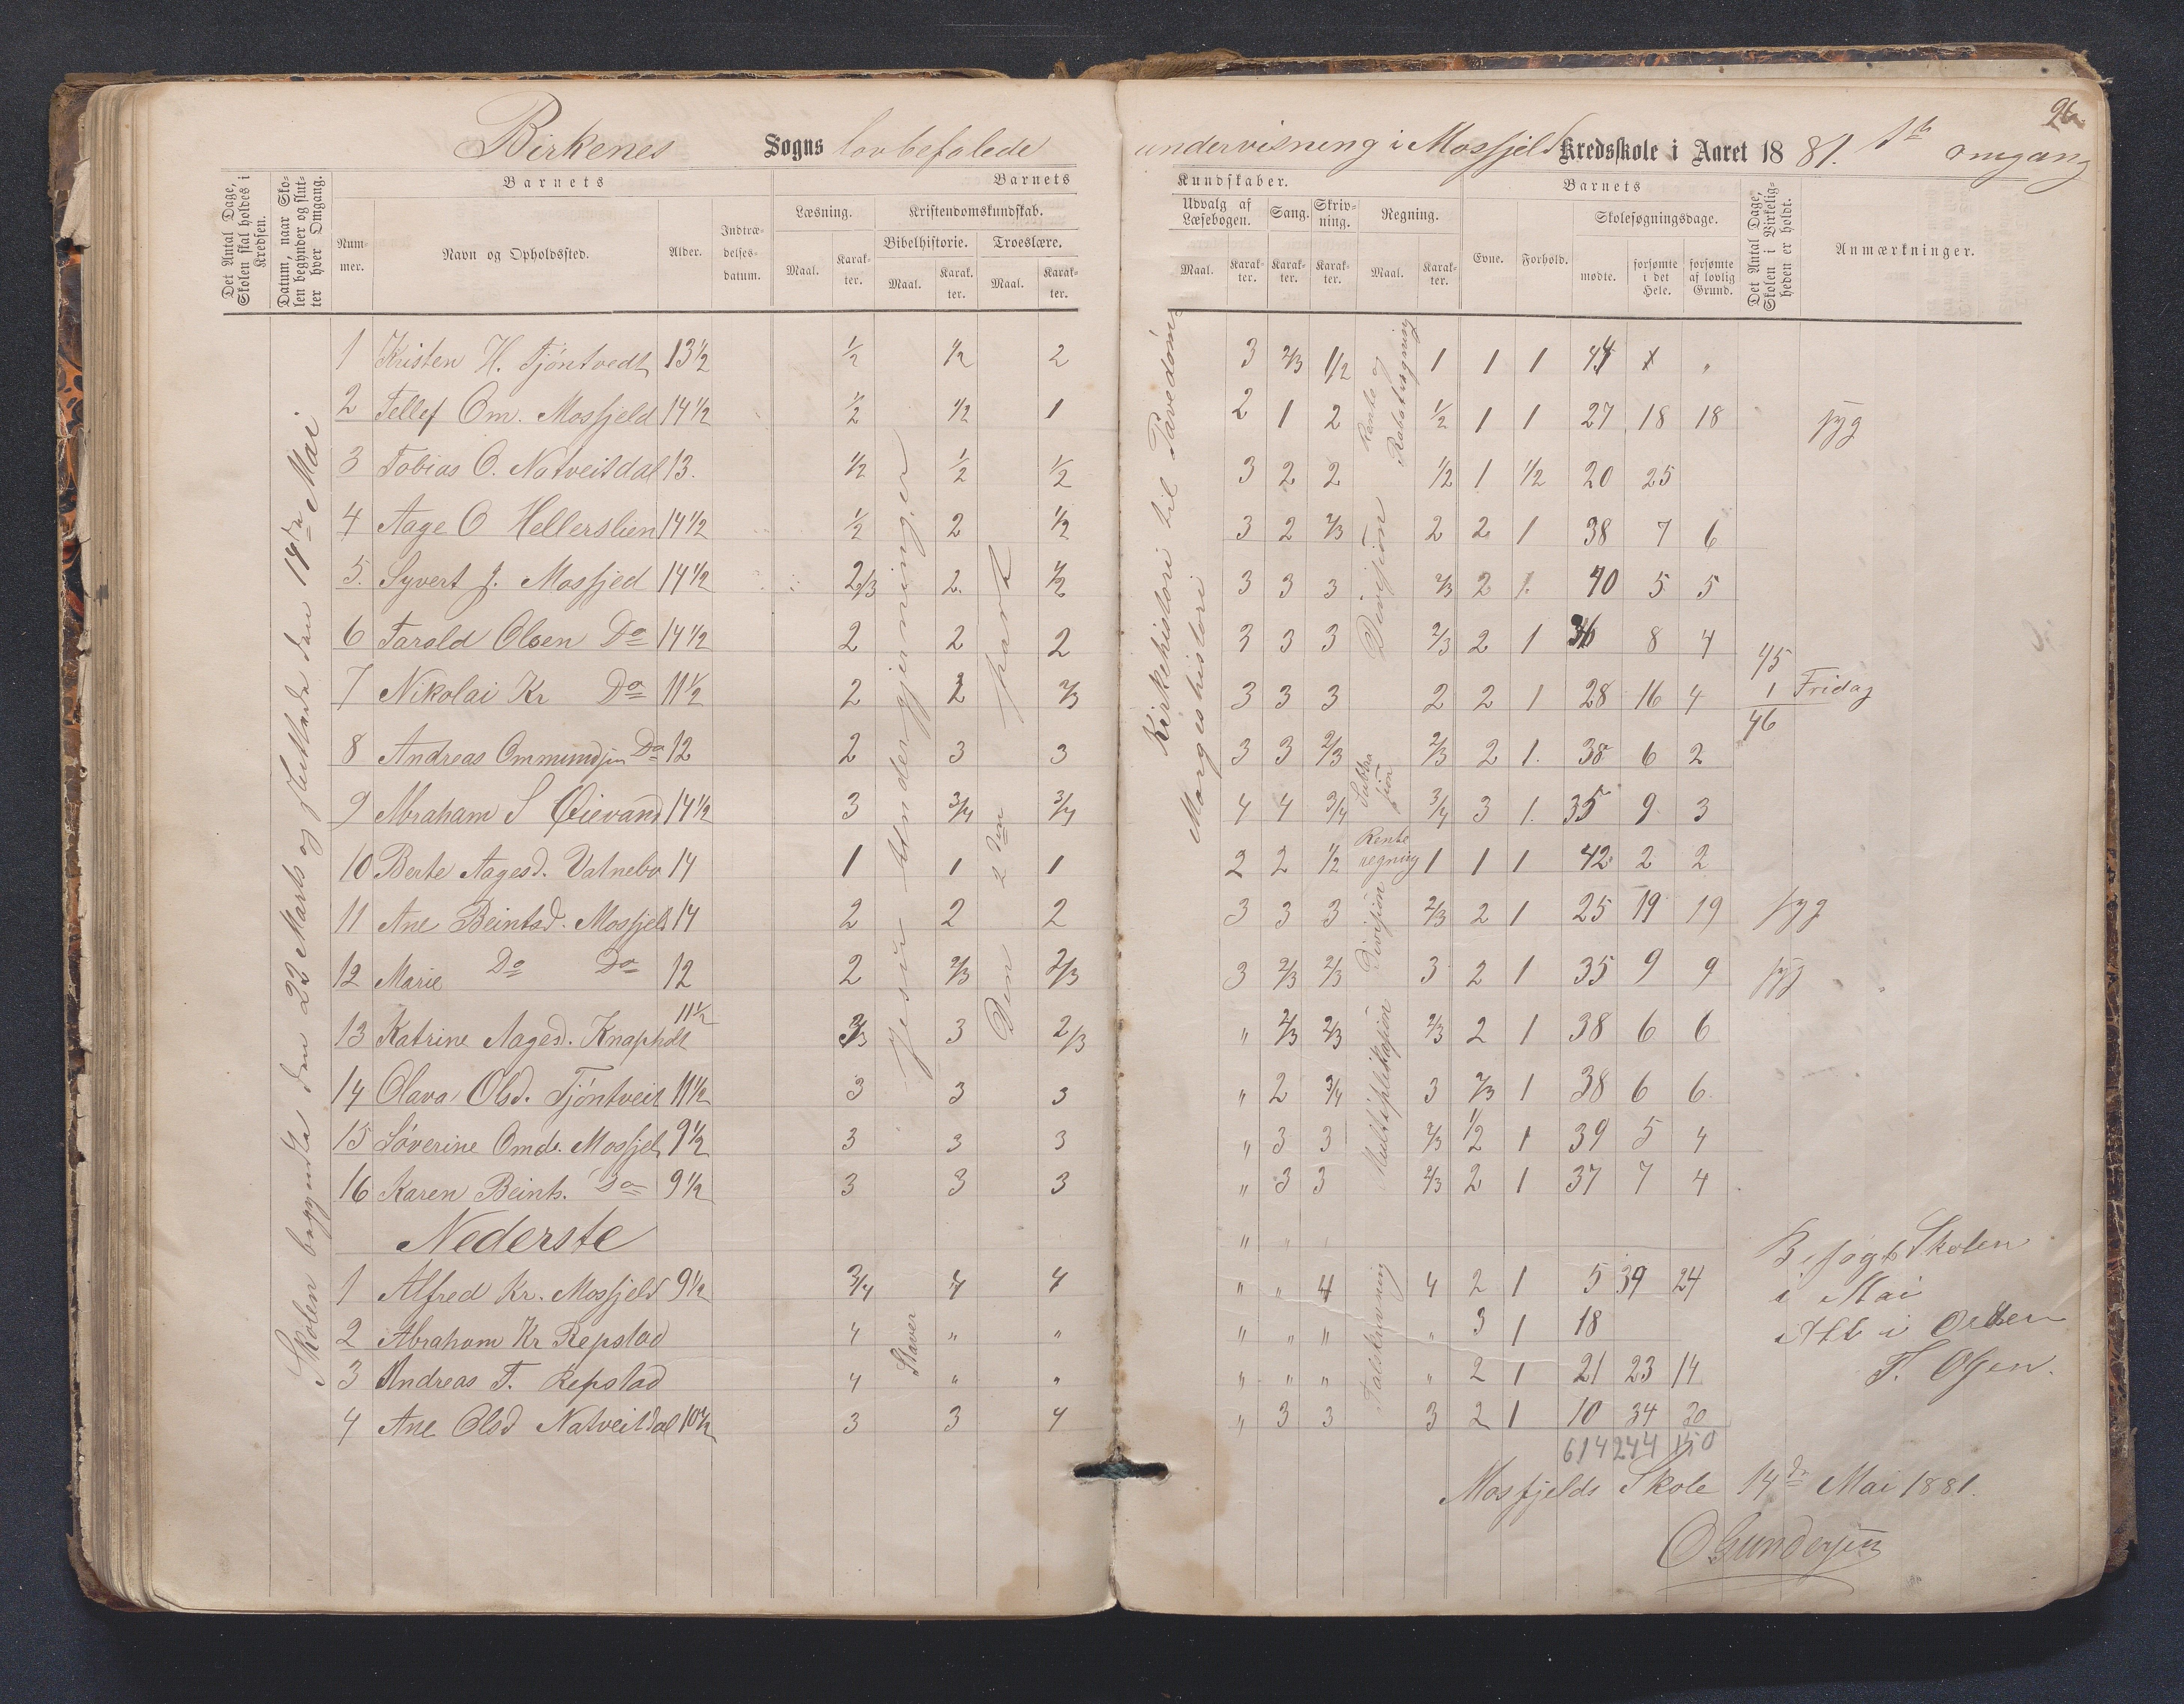 26
Birkenes Sogns lovbefalede undervisning i Mosfjeld Kredsskole i Aaret 1881. 1ste omgang
Det Antal Dage, Skolen skal holdes i Kredsen.
Datum, naar Skolen begynder og slutter hver Omgang.
Barnets
Nummer.
Navn og Opholdssted.
Alder.
Indtrædelsesdatum.
Barnets
Læsning.
Maal. Karakter.
Kristendomskundskab.
Bibelhistorie. Troeslære.
Maal. Karakter. Maal. Karakter.
Kundskaber.
Udvalg af Læsebogen. Sang. Skrivning. Regning.
Maal. Karakter. Karakter. Karakter. Maal. Karakter.
Barnets
Evne. Forhold. Skolesøgningsdage.
mødte. forsømte i det Hele. forsømte af lovlig Grund.
Det Antal Dage, Skolen i Virkeligheden er holdt.
Anmærkninger.
Skolen begyndte den 22 Marts og sluttede den 14de Mai.
Jesu Undergjerninger
Den 2den part
Kirkehistori til Pavedöm.
Margeshistori
Rente og Rabatregning
Division
Subtra sjon
Rente regning
Division
Multiplikasjon
Staver
Talskrivning
1 Kristen H. Tjöntvedt 13½ ½ ½ 2 3 2/3 1/2 1 1 1 44 1 "
2 Tellef Om. Mosfjeld 14½ ½ ½ 1 2 1 2 ½ 1 1 27 18 18 syg
3 Tobias O. Natveitdal 13. ½ ½ ½ 3 2 2 ½ 1 ½ 20 25
4 Aage O Hellerslien 14½ ½ 2 ½ 3 2 2/3 2 2 1 38 7 6
5. Syvert J. Mosfjed 14½ 2/3 2. ½ 3 3 3 2/3 2 1. 40 5 5
6 Tarald Olsen Do 14½ 2 2 2 3 3 3 2/3 2 1 36 8 4
7 Nikolai Kr Do 11½ 2 2 2/3 3 3 3 2 2 1 28 16 4 45 1 46 Fridag
8 Andreas Ommundsen Do 12 2 3 3 3 3 2/3 2/3 2 1. 38 6 2
9 Abraham S Øievand 14½ 3 3/4 3/4 4 4 3/4 3/4 3 1. 35 9 3
10 Berte Aagesd. Vatnebo 14 1 1 1 2 2 ½ 1 1 1 42 2 2
11 Ane Beintsd. Mosfjeld 14 2 2 2 3 3 3 2/3 2 1 25 19 19 syg
12 Marie Do Do 12 2 2/3 2/3 3 2/3 2/3 3 2 1 35 9 9 syg
13 Katrine Aagesd. Knapholt 11½ 2/3 3 2/3 " 2/3 2/3 2/3 2 1 38 6 6
14 Olava Olsd. Tjöntveit 11½ 3 3 3 " 2 3/4 3 2/3 1 38 6 6
15 Söverine Omds. Mosfjel 9½ 3 3 3 " 3 3 2/3 ½ 1 39 5 4
16 Karen Beints. Do 9½ 3 3 3 " 3 3 2/3 2 1 37 7 4
Nederste
1 Alfred Kr. Mosfjeld 9½ 3/4 4 4 " " 4 4 2 1 5 39 24
2 Abraham Kr Repstad 4 " " " " " " 3 1 18
3 Andreas T. Repstad 4 " " " " " " 2 1 21 23 14
4 Ane Olsd Natveitdal 10½ 3 3 4 " 3 3 3 2 1 10 34 20
614 244 150
Besøgt Skolen
i Mai
Alt i Orden
T. Olsen.
Mosfjelds Skole 14de Mai 1881.
O Gundersen